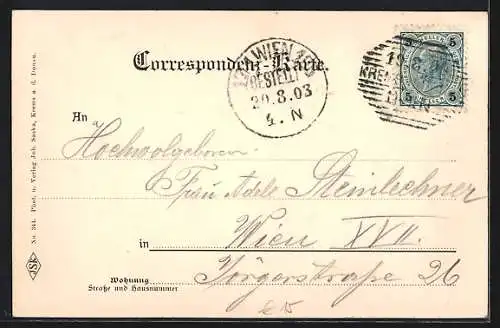 Correspondenz-Karte.
WIEN
BESTELLT
20.8.03
4. N
5 5
5 5
19.8.
KREMS
An
Hochwolgeboren
Frau Adele Steinlechner
in Wien XVII.
Wohnung
Straße und Hausnummer
Jörgerstraße 26
No. 344. Phot. u. Verlag Joh. Sæska, Krems a. d. Donau.